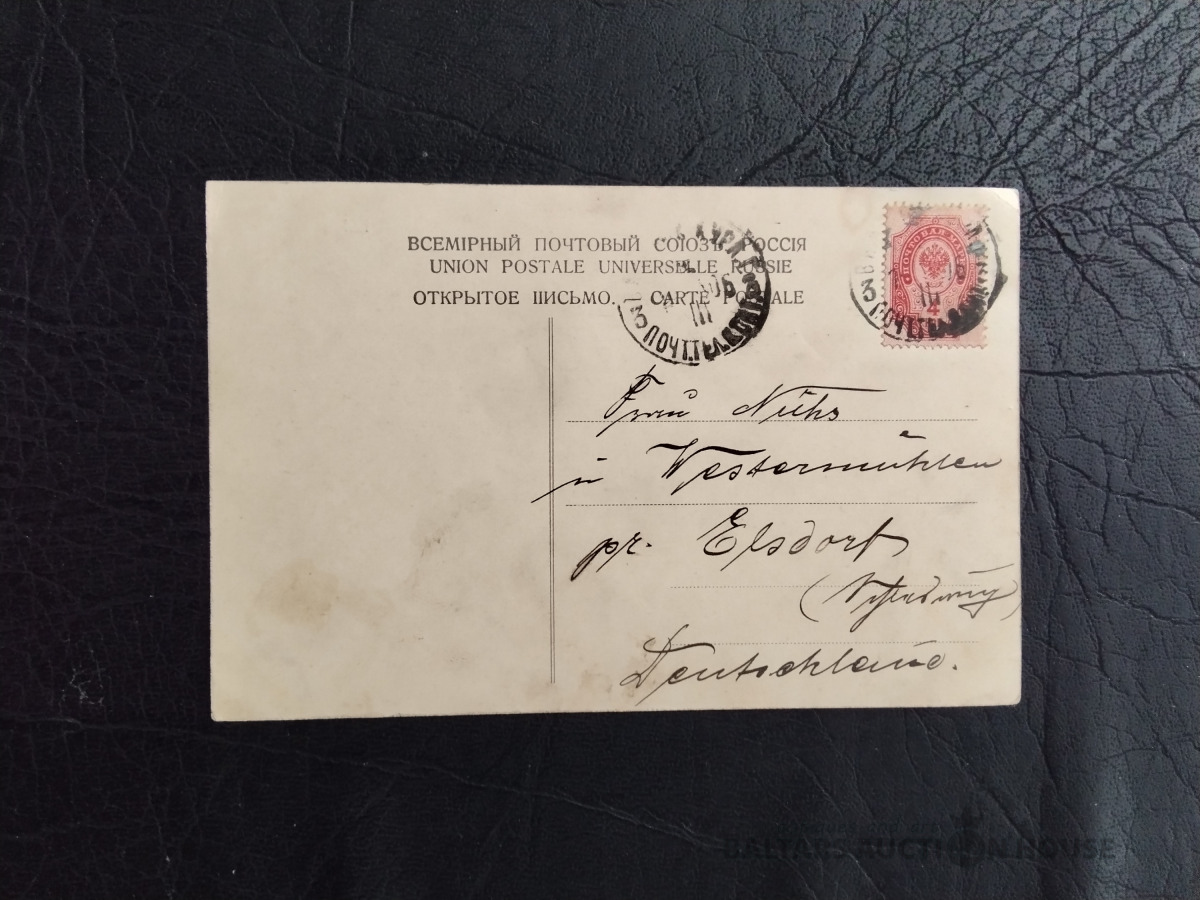 ВСЕМІРНЫЙ ПОЧТОВЫЙ СОЮЗЪ РОССІЯ
UNION POSTALE UNIVERSELLE RUSSIE
ОТКРЫТОЕ ПИСЬМО. CARTE POSTALE
ПОЧТОВАЯ МАРКА
4
Frau
in Westermühlen
pr. Elsdorf
(Schleswig)
Deutschland.
BALTARS AUCTION HOUSE